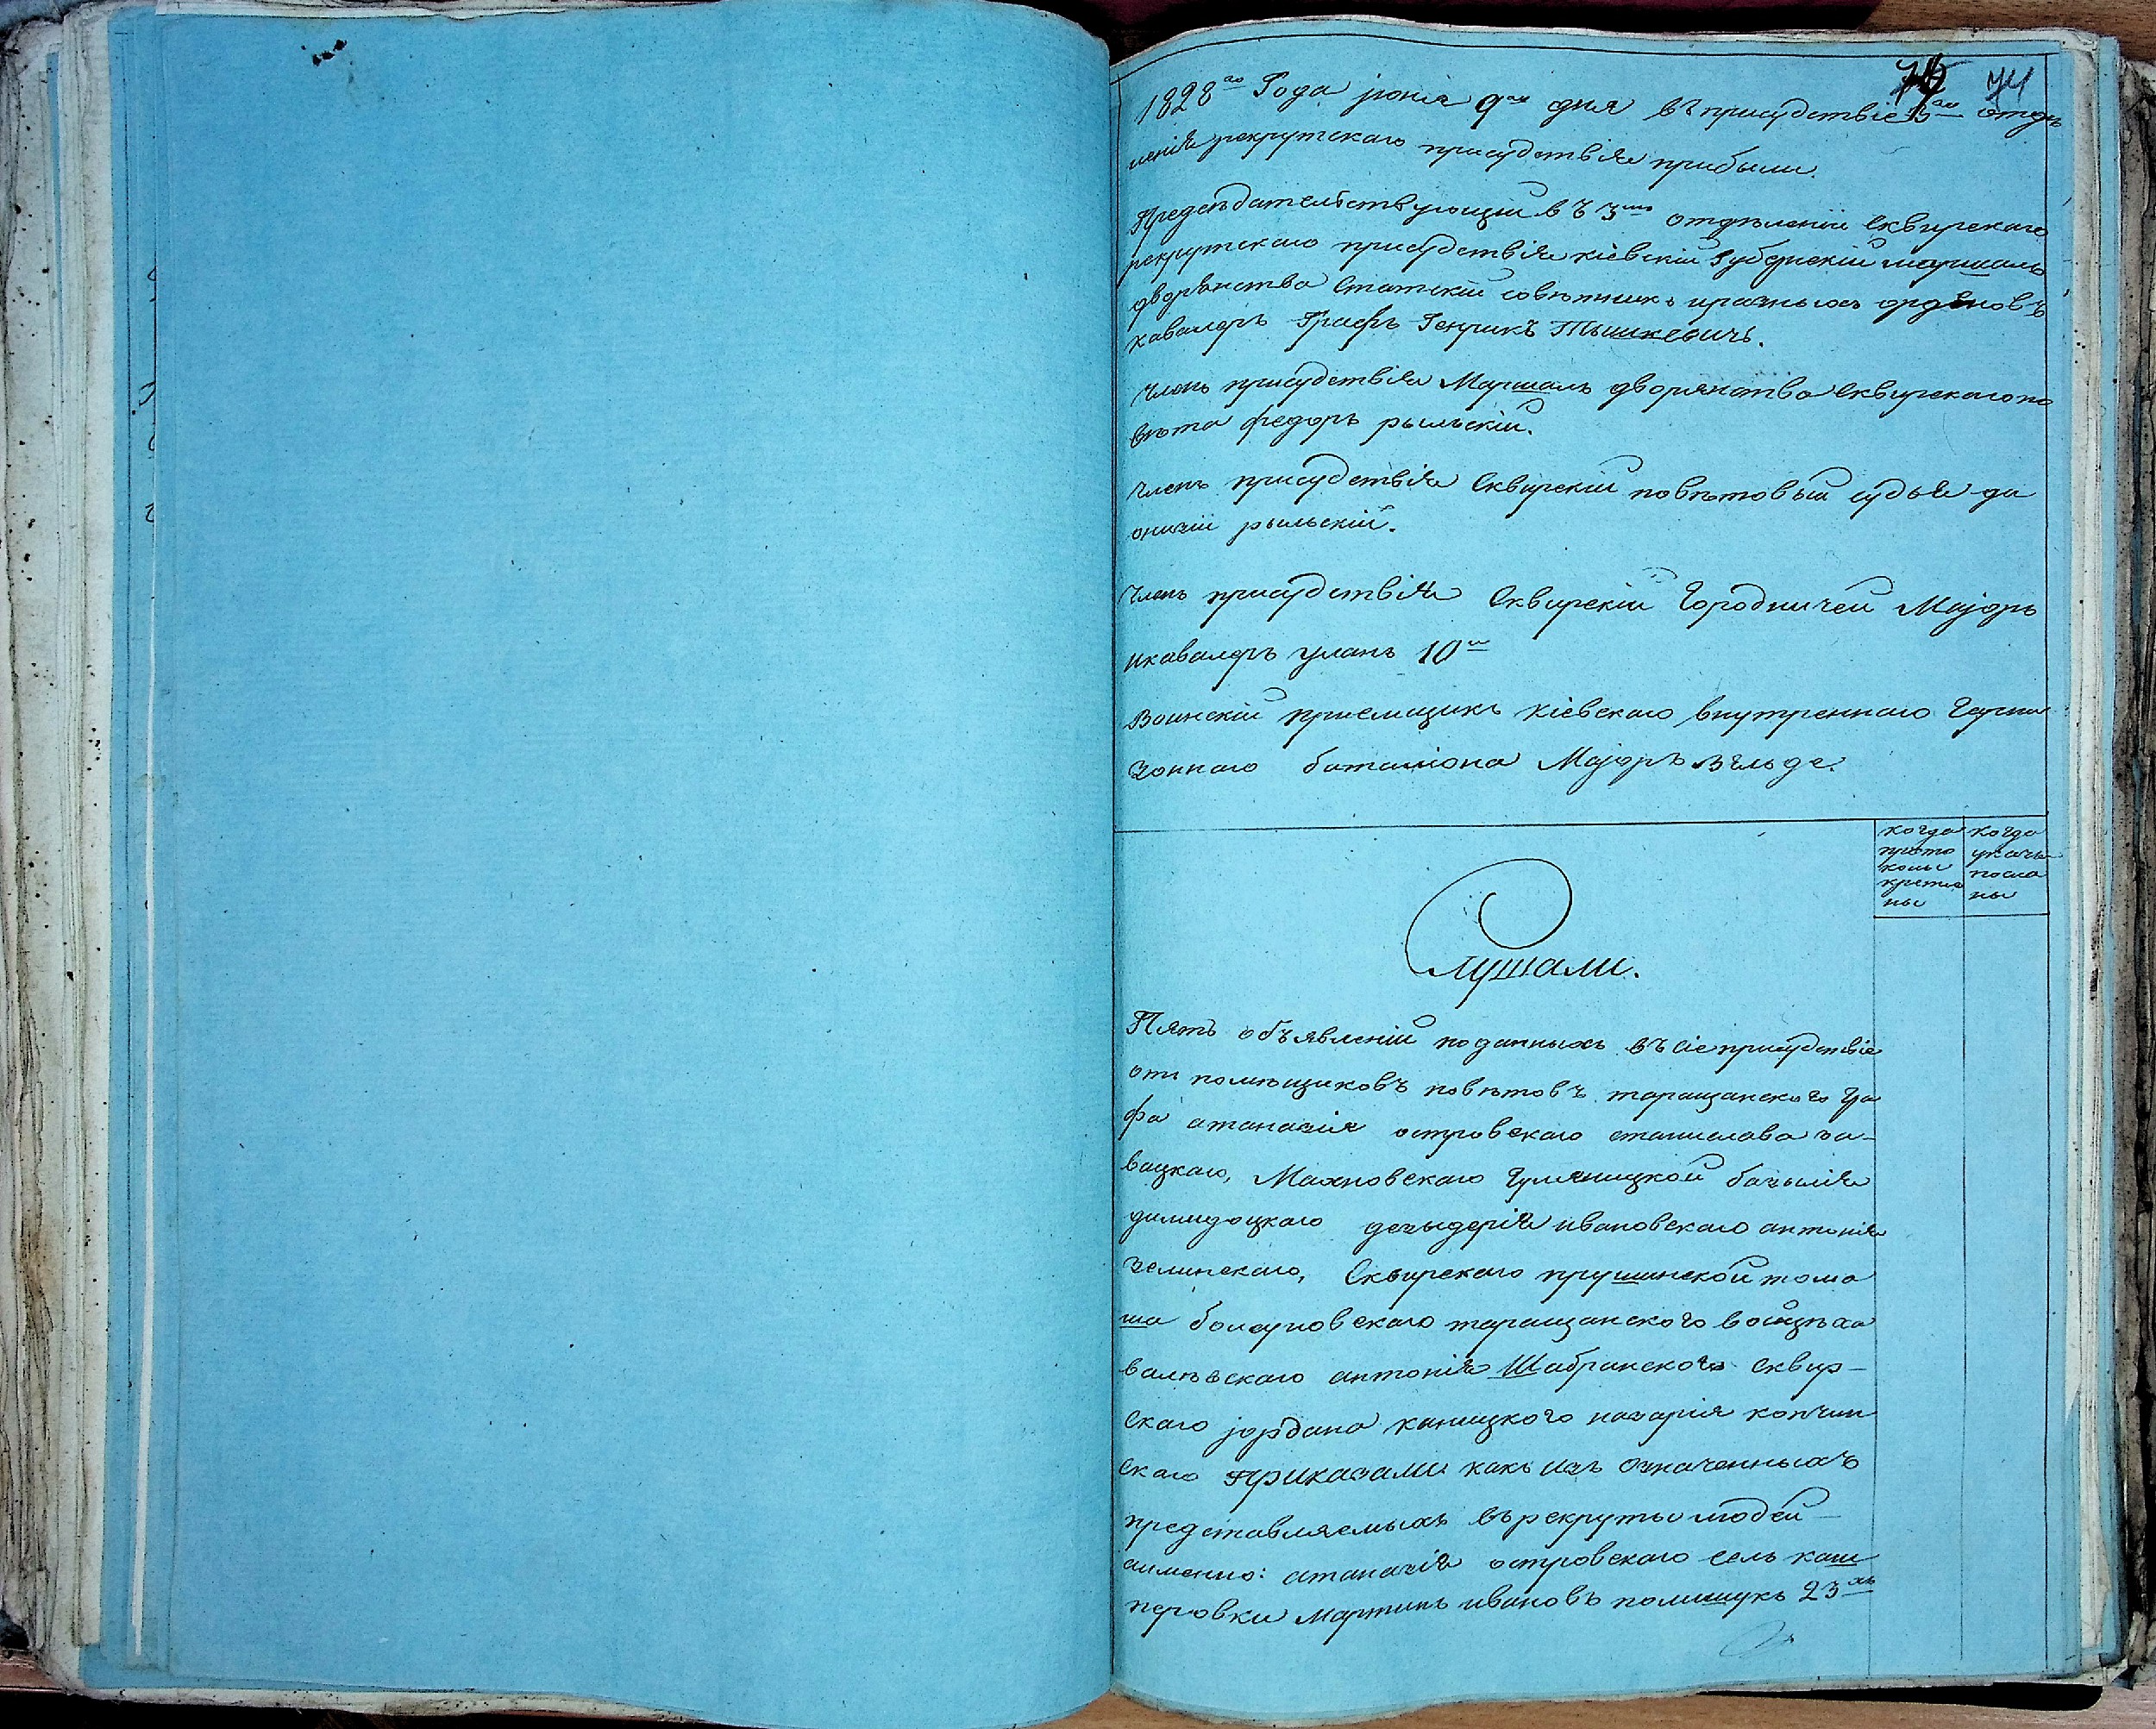 74
1828го Года июня 9го дня въ присудствіе 3го отде
ленія рекрутскаго присудствія прибыли.
Председательствующій въ 3мъ отделеніи Сквирскаго
рекрутскаго присудствія кіевскій Губернскій маршалъ
дворянства Статскій советникъ и разныхъ орденовъ
кавалеръ Графъ Генрикъ Тышкевичъ.
Членъ присудствія Маршалъ дворянства Сквирскаго по
вета федоръ рыльскій.
Членъ присудствія Сквирскій поветовый судья ди
онизій рыльскій.
Членъ присудствія Сквирскій Городничей Маіоръ
и кавалеръ уланъ 10й
Воинскій приемщикъ кіевскаго внутреннаго Гарни
зоннаго баталіона Маіоръ вильде.
когда
прото
колы
крепле
ны
когда
указы
посла
ны
Слушали.
Пять объявленій поданныхъ въ сіе присудствіе
отъ помещиковъ поветовъ таращанского Гра
фа атаназія островскаго станислава за-
вацкаго, Махновскаго Гуляницкой базылія
дезыдерія ивановскаго антонія
зелинскаго, Сквирскаго прушинской тома
ша таращанского войцеха
валевскаго антонія Шабранского сквир-
скаго іордана каницкого назарія копчин
скаго приказали какъ изъ означенныхъ
представляемыхъ въ рекруты людей
аименно: атаназія островскаго селъ каш
перовки мартинъ ивановъ полищукъ 23хъ